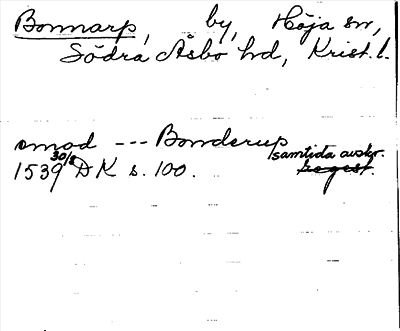 Bonnarp, by, Höja sn,
Södra Åsbo hd, Krist. l.
omod --- Bonderup
1539 30/8 DK s. 100. samtida avskr.
regest.